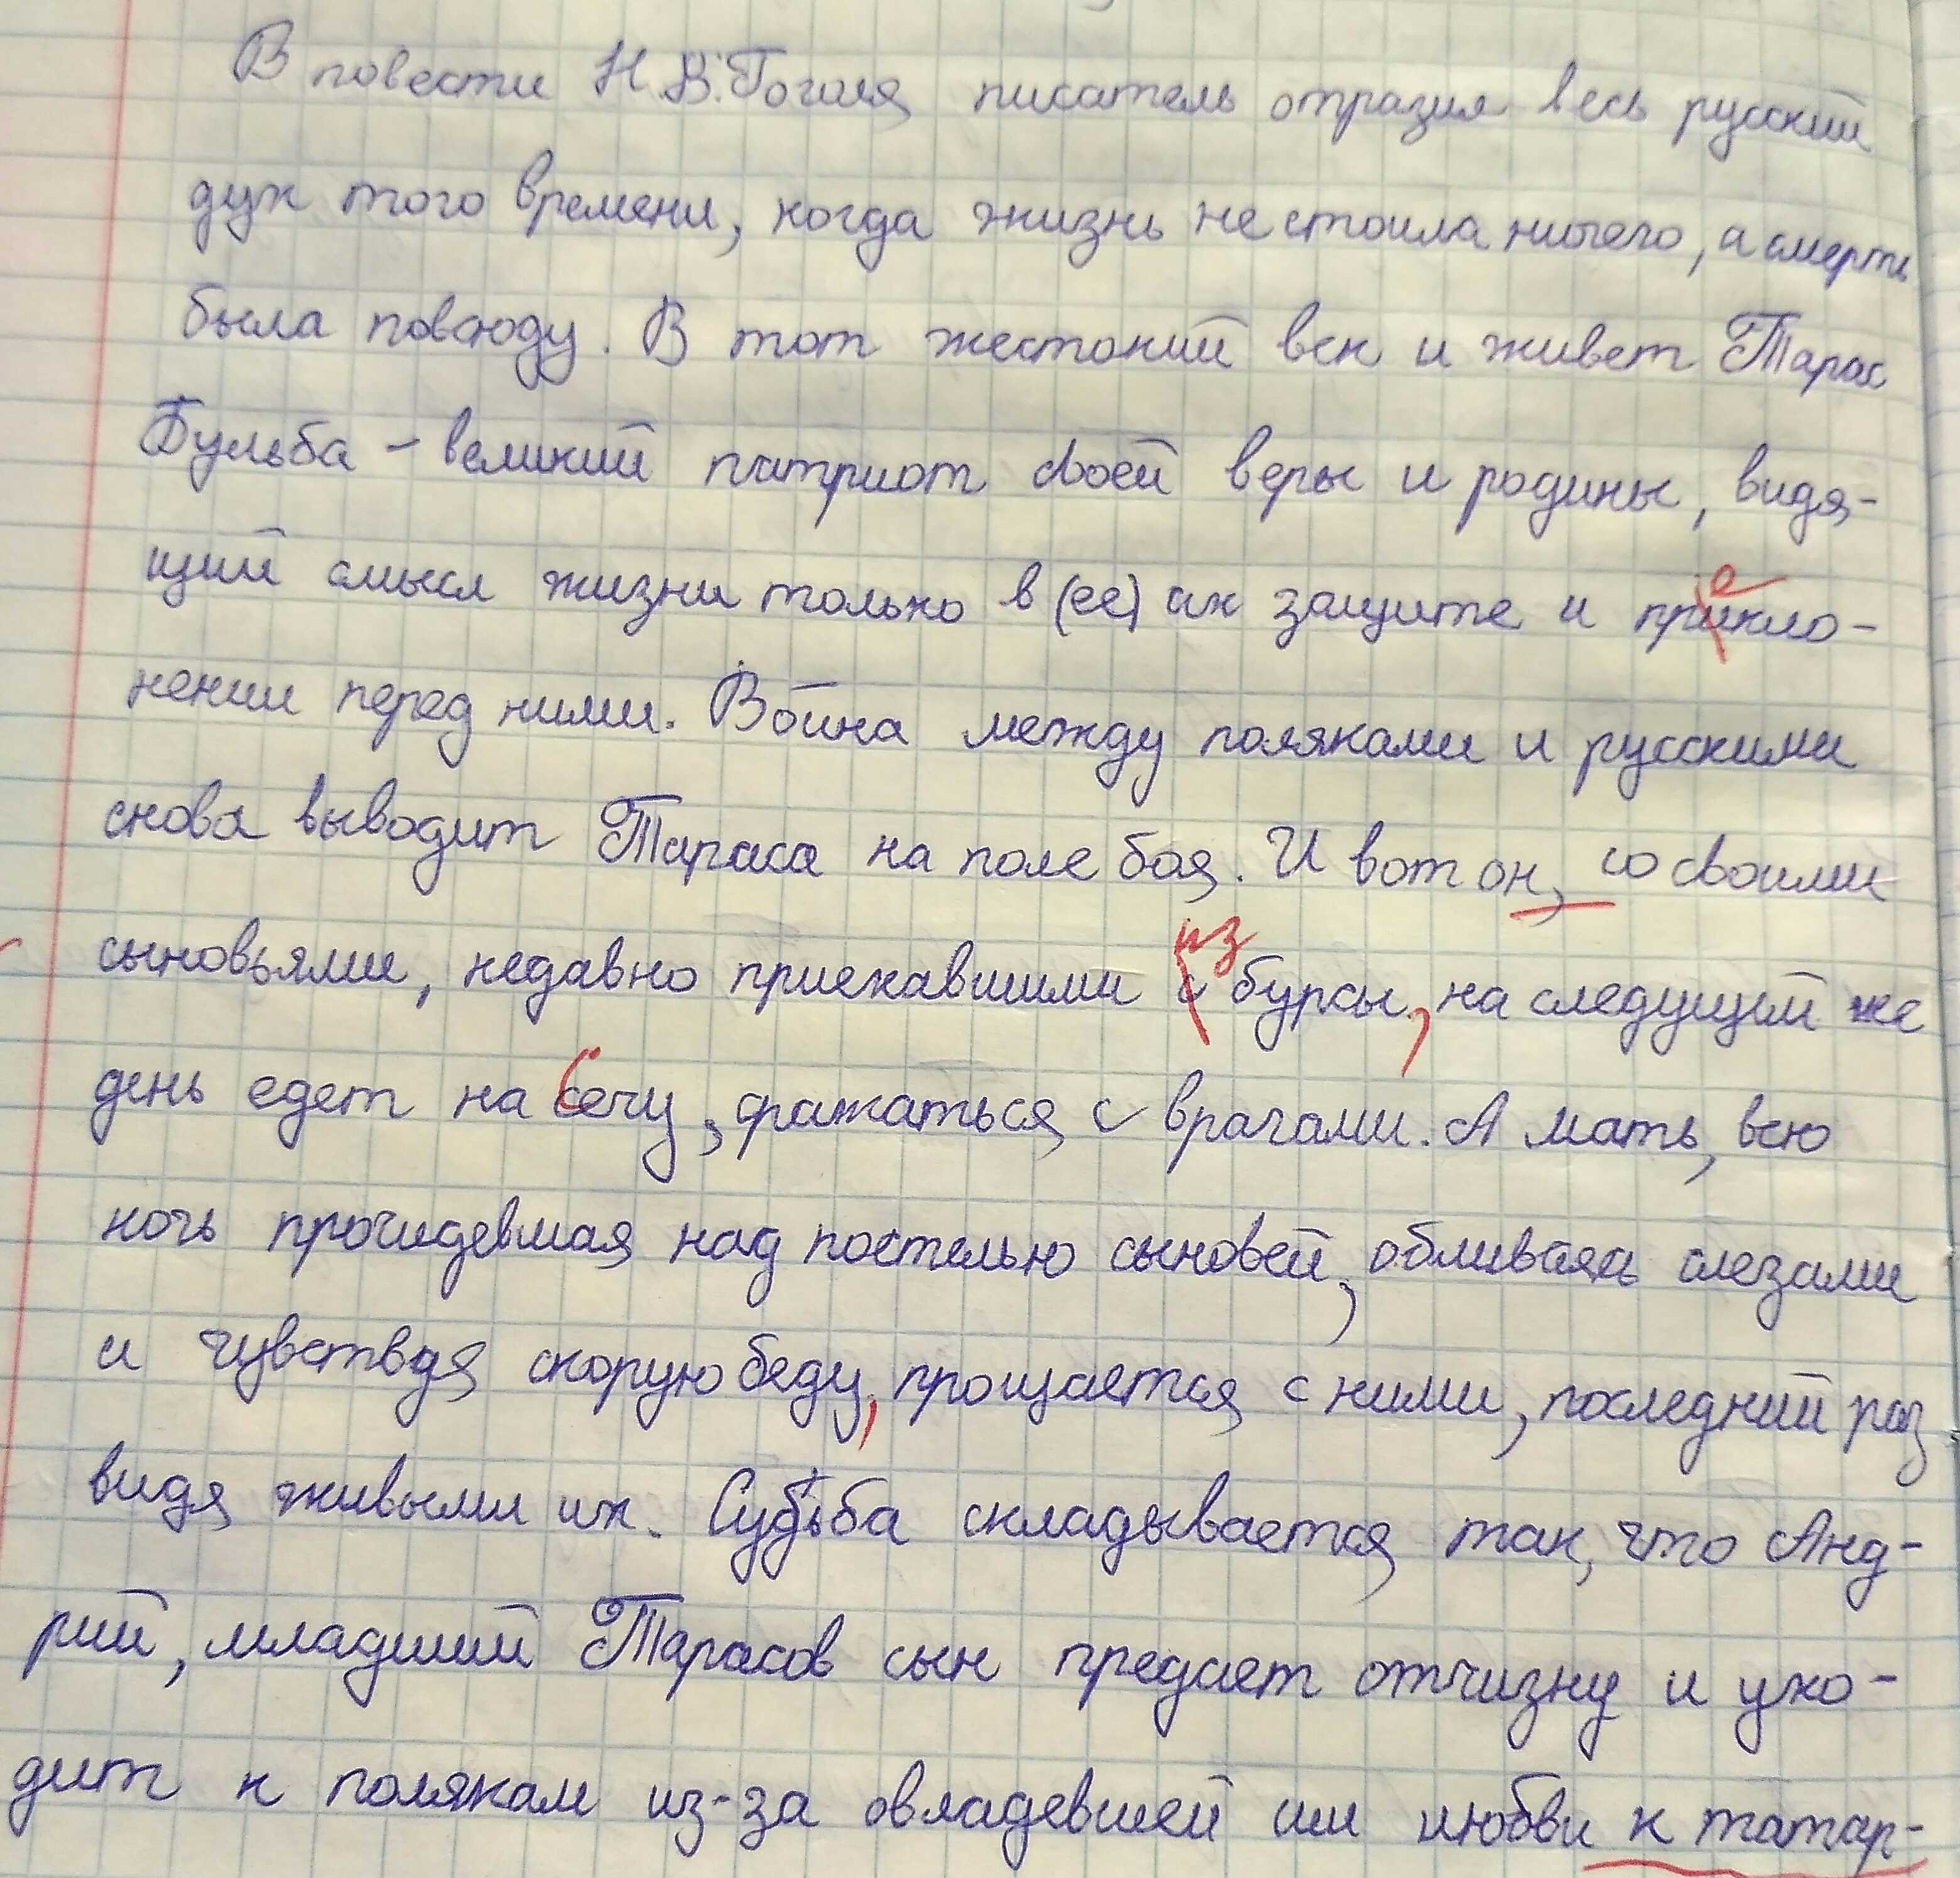 В повести Н.В.Гоголя писатель отразил весь русский
дух того времени, когда жизнь не стоила ничего, а смерть
была повсюду. В тот жестокий век и живет Тарас
Бульба – великий патриот своей веры и родины, видя-
щий смысл жизни только в (ее) их защите и прикло-
е
нении перед ними. Война между поляками и русскими
снова выводит Тараса на поле боя. И вот он, со своими
из
сыновьями, недавно приехавшими с бурсы, на следущий же
день едет на сечу, сражаться с врагами. А мать, всю
ночь просидевшая над постелью сыновей, обливаясь слезами
и чувствуя скорую беду, прощается с ними, последний раз
видя живыми их. Судьба складывается так, что Анд-
рий, младший Тарасов сын предает отчизну и ухо-
дит к полякам из-за овладевшей им любви к татар-